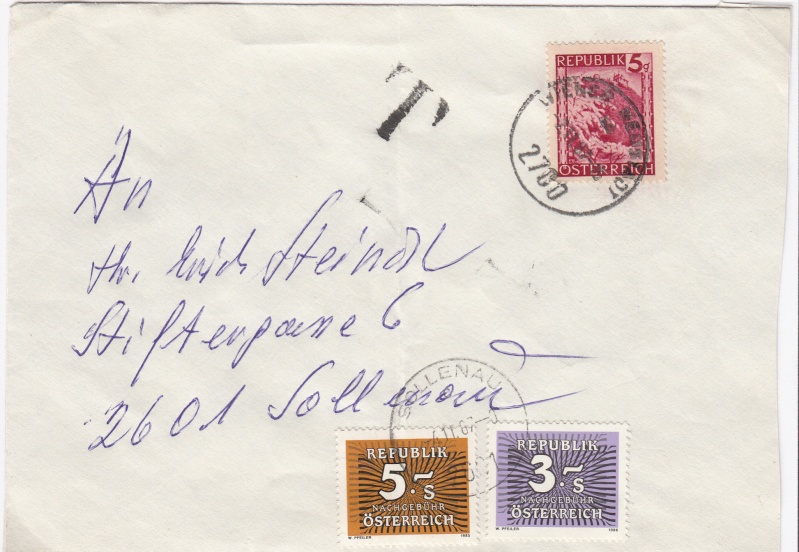 T
REPUBLIK 5g
ÖSTERREICH
WIENER NEUSTADT
2700
An
Hr. Erich Steindl
Stiftergasse 6
2601 Sollenau
SOLLENAU
REPUBLIK
5.-S
NACHGEBÜHR
ÖSTERREICH
W. PFEILER 1985
REPUBLIK
3.-S
NACHGEBÜHR
ÖSTERREICH
W. PFEILER